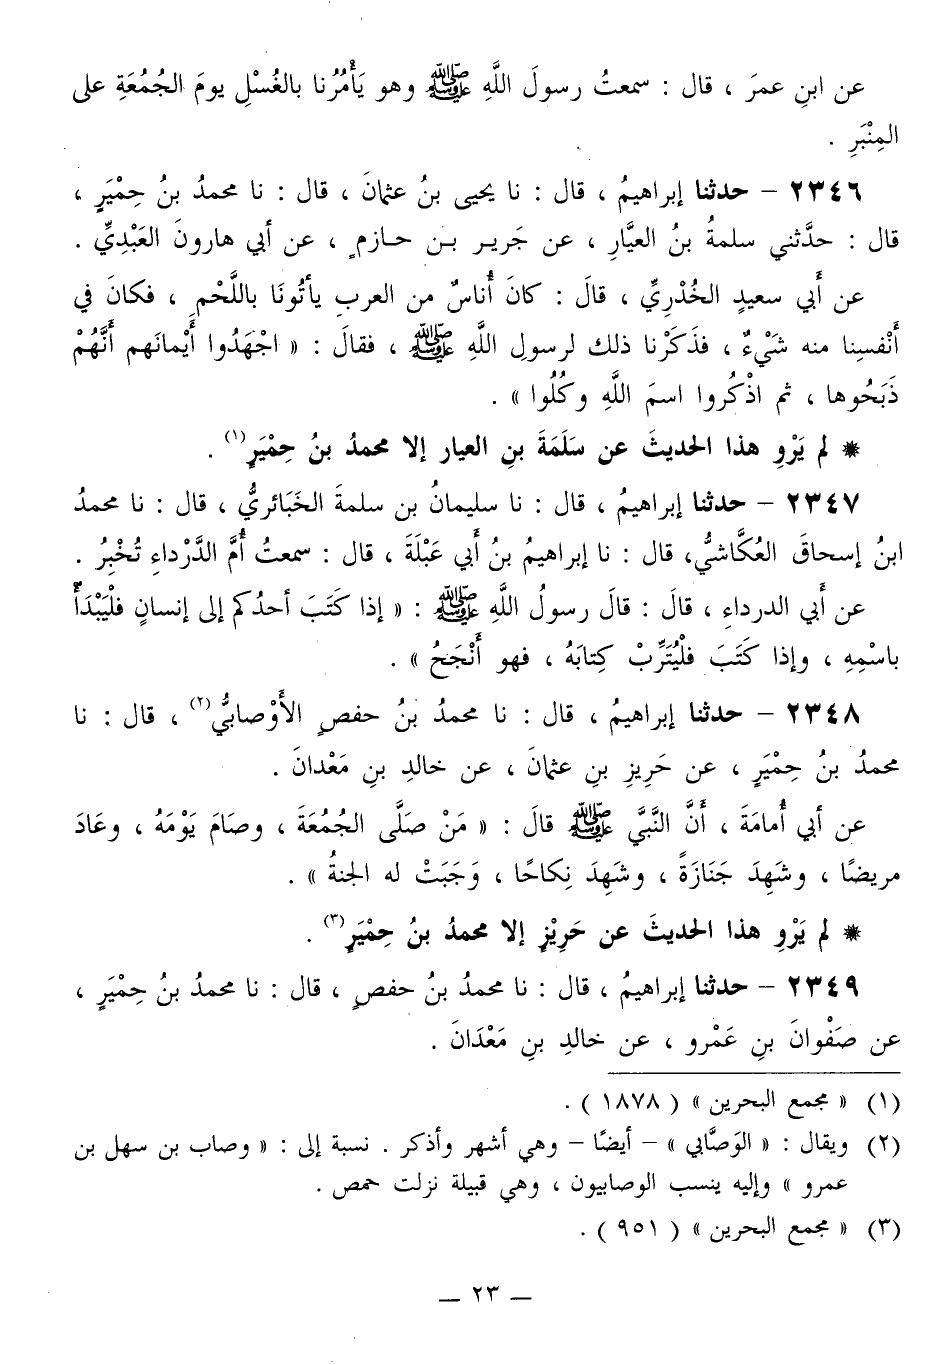 عن ابنِ عمرَ ، قال : سمعتُ رسولَ اللَّهِ ﷺ وهو يَأْمُرُنا بالغُسْلِ يومَ الجُمُعَةِ على
المِنْبَرِ .
٢٣٤٦ – حدثنا إبراهيمُ ، قال : نا يحيى بنُ عثمانَ ، قال : نا محمدُ بنُ حِمْيَرٍ ،
قال : حدَّثني سلمةُ بنُ العيَّارِ ، عن جَريـر بـن حـازمٍ ، عن أبي هارونَ العَبْدِيِّ .
عن أَبي سعيدٍ الخُدْرِيِّ ، قالَ : كانَ أُناسٌ من العربِ يأتُونَا باللَّحْمِ ، فكانَ في
أَنْفسِنا منه شَيْءٌ ، فذَكَرْنا ذلك لرسولِ اللَّهِ ﷺ ، فقالَ : « اجْهَدُوا أَيْمانَهم أَنَّهُمْ
ذَبَحُوها ، ثم اذْكُروا اسمَ اللَّهِ وكُلُوا » .
* لم يَرْوِ هذا الحديثَ عن سَلَمَةَ بنِ العيار إلا محمدُ بنُ حِمْيَرٍ(١) .
٢٣٤٧ – حدثنا إبراهيمُ ، قال : نا سليمانُ بن سلمةَ الخَبَائريُّ ، قال : نا محمدُ
ابنُ إسحاقَ العُكَّاشيُّ، قال : نا إبراهيمُ بنُ أَبي عَبْلَةَ ، قال : سمعتُ أُمَّ الدَّرْداءِ تُخْبِرُ .
عن أَبي الدرداءِ ، قالَ : قالَ رسولُ اللَّهِ ﷺ : « إذا كَتَبَ أحدُكم إلى إنسانٍ فلْيَبْدَأْ
باسْمِهِ ، وإذا كَتَبَ فلْيُتَرِّبْ كِتابَهُ ، فهو أَنْجَحُ » .
٢٣٤٨ – حدثنا إبراهيمُ ، قال : نا محمدُ بنُ حفصٍ الأَوْصابيُّ(٢) ، قال : نا
محمدُ بنُ حِمْيَرٍ ، عن حَريزِ بنِ عثمانَ ، عن خالدِ بنِ مَعْدانَ .
عن أبي أُمامَةَ ، أَنَّ النَّبيَّ ﷺ قالَ : « مَنْ صَلَّى الجُمُعَةَ ، وصَامَ يَوْمَهُ ، وعَادَ
مريضًا ، وشَهِدَ جَنَازَةً ، وشَهِدَ نِكاحًا ، وَجَبَتْ له الجنةُ » .
* لم يَرْوِ هذا الحديثَ عن حَرِيْزٍ إلا محمدُ بنُ حِمْيَرٍ(٣) .
٢٣٤٩ – حدثنا إبراهيمُ ، قال : نا محمدُ بنُ حفصٍ ، قال : نا محمدُ بنُ حِمْيَرٍ ،
عن صَفْوانَ بنِ عَمْرو ، عن خالدِ بنِ مَعْدَانَ .
(١) « مجمع البحرين » ( ١٨٧٨ ) .
(٢) ويقال : « الوَصَّابي » – أيضًا – وهي أشهر وأذكر . نسبة إلى : « وصاب بن سهل بن
عمرو » وإليه ينسب الوصابيون ، وهي قبيلة نزلت حمص .
(٣) « مجمع البحرين » ( ٩٥١ ) .
– ٢٣ –